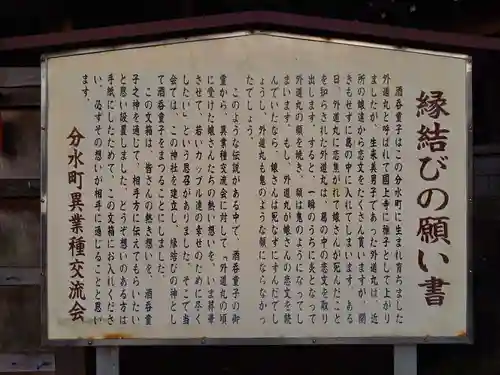 縁結びの願い書
酒呑童子はこの分水町に生まれ育ちました
外道丸と呼ばれて国上寺に稚子として上がり
ましたが、生来美男子であった外道丸は、近
所の娘達から恋文をたくさん貰いますが、開
きもせずに葛の中に入れてしまいます。ある
日、外道丸に恋焦がれて娘さんが死んだこと
を知らされた外道丸は、葛の中の恋文を取り
出します。すると、一瞬のうちに炎となって
外道丸の顔を焼き、顔は鬼のようになってし
まいます。もし、外道丸が娘さんの恋文を読
んでいたなら、娘さんは死なずにすんだでし
ょうし、外道丸も鬼のような顔にならなかっ
たでしょう。
このような伝説がある中で、酒呑童子の御
霊から、異業種交流会に対して「外道丸の頃
に受けた娘さんたちの熱い想いを、いま昇華
させて、若いカップル達の幸せのために尽く
したい」という思召がありました。そこで当
会では、この神社を建立し、縁結びの神とし
て酒呑童子をまつることにしました。
この文箱は、皆さんの熱き想いを、酒呑童
子之神を通じて、相手方に伝えてもらいたい
と思い設置しました。どうぞ想いのある方は
手紙にしたためて、この文箱にお入れくださ
い。必ずその想いが相手に通じることと思い
ます。
分水町異業種交流会